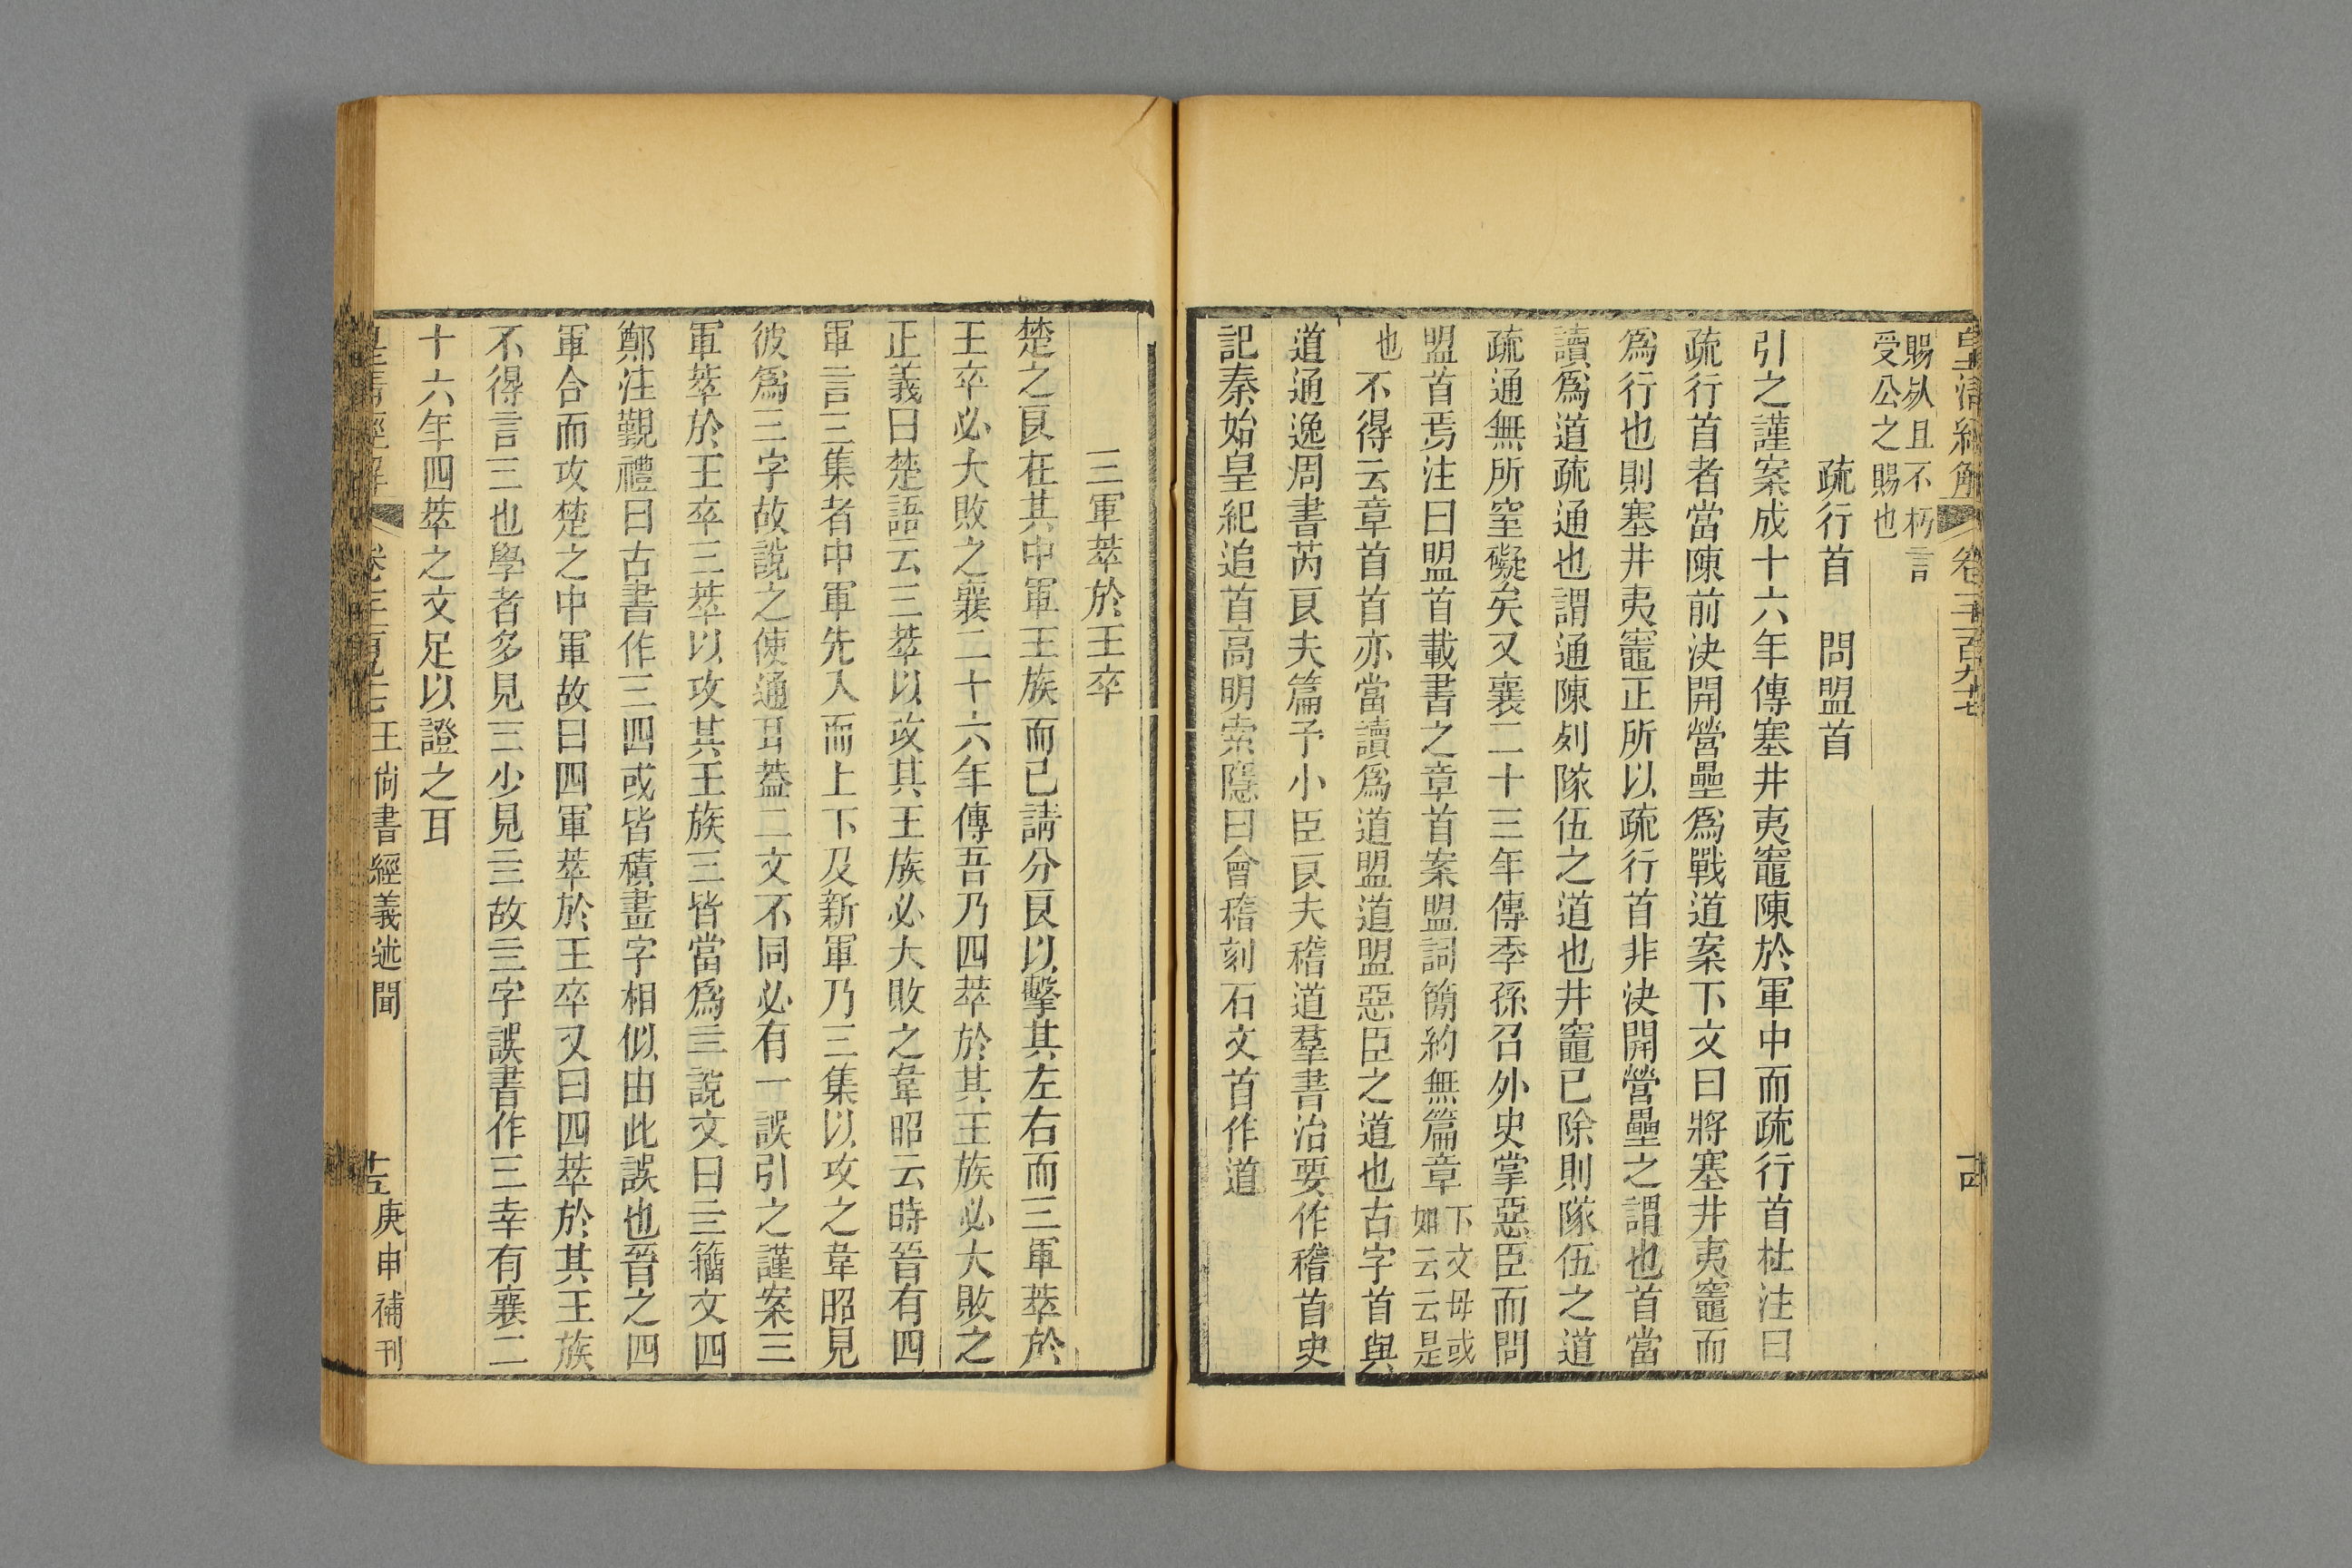 皇清經解 卷一千一百九十七 十四
賜死且不朽言
受公之賜也
疏行首 問盟首
引之謹案成十六年傳塞井夷竈陳於軍中而疏行首杜注曰
疏行首者當陳前決開營壘爲戰道案下文曰將塞井夷竈而
爲行也則塞井夷竈正所以疏行首非決開營壘之謂也首當
讀爲道疏通也謂通陳列隊伍之道也井竈已除則隊伍之道
疏通無所窒礙矣又襄二十三年傳季孫召外史掌惡臣而問
盟首焉注曰盟首載書之章首案盟詞簡約無篇章下文毋或
如云云是
也不得云章首首亦當讀爲道盟道盟惡臣之道也古字首與
道通逸周書芮良夫篇予小臣良夫稽道羣書治要作稽首史
記秦始皇紀追首高明索隱曰會稽刻石文首作道
三軍萃於王卒
楚之良在其中軍王族而已請分良以擊其左右而三軍萃於
王卒必大敗之襄二十六年傳吾乃四萃於其王族必大敗之
正義曰楚語云三萃以攻其王族必大敗之韋昭云時晉有四
軍言三集者中軍先入而上下及新軍乃三集以攻之韋昭見
彼爲三字故說之使通耳蓋二文不同必有一誤引之謹案三
軍萃於王卒三萃以攻其王族三皆當爲亖說文曰亖籀文四
鄭注覲禮曰古書作三四或皆積畫字相似由此誤也晉之四
軍合而攻楚之中軍故曰四軍萃於王卒又曰四萃於其王族
不得言三也學者多見三少見亖故亖字誤書作三幸有襄二
十六年四萃之文足以證之耳
王尚書經義述聞 十五 庚申補刊